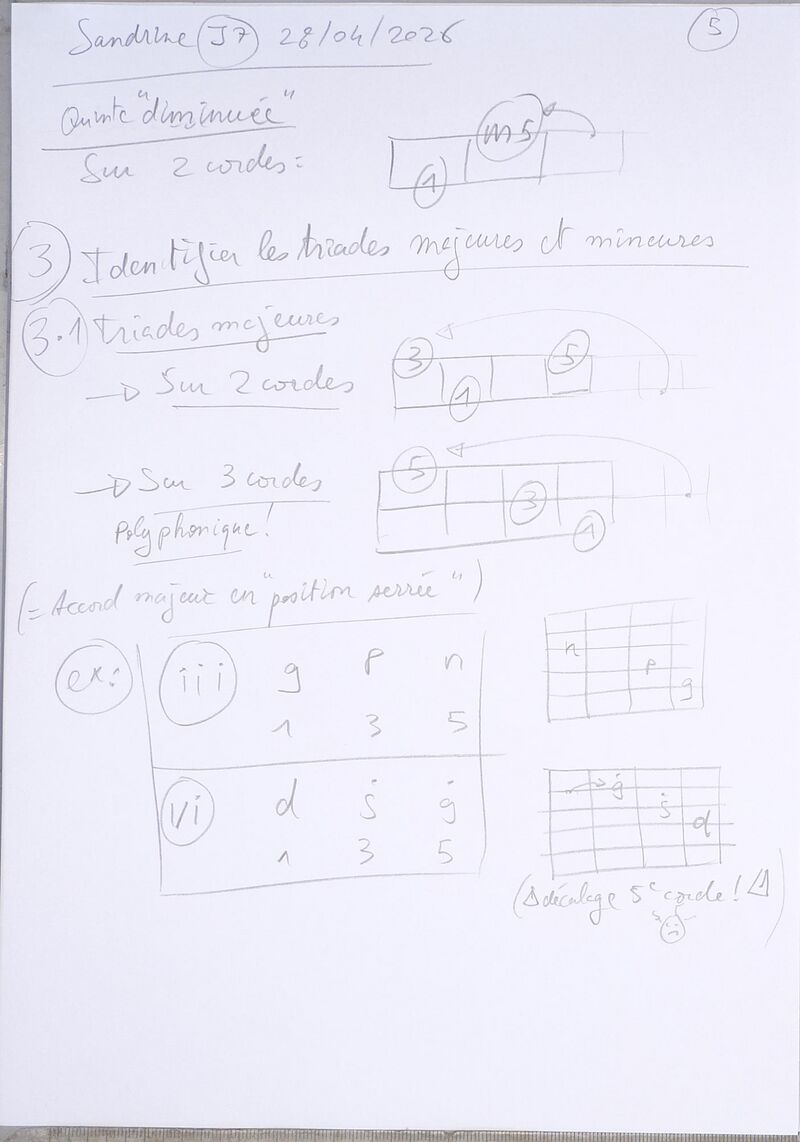 Sandrine J7 28/04/2026 5
Quinte "diminuée"
Sur 2 cordes =
m5
1
3 Identifier les triades majeures et mineures
3.1 triades majeures
→ Sur 2 cordes
3 5
1
→ Sur 3 cordes
Polyphonique !
5
3
1
(= Accord majeur en "position serrée")
ex: iii g p n
1 3 5
n
p
g
vi d j g
1 3 5
g
j
d
(⚠ décalage 5e corde ! ⚠)